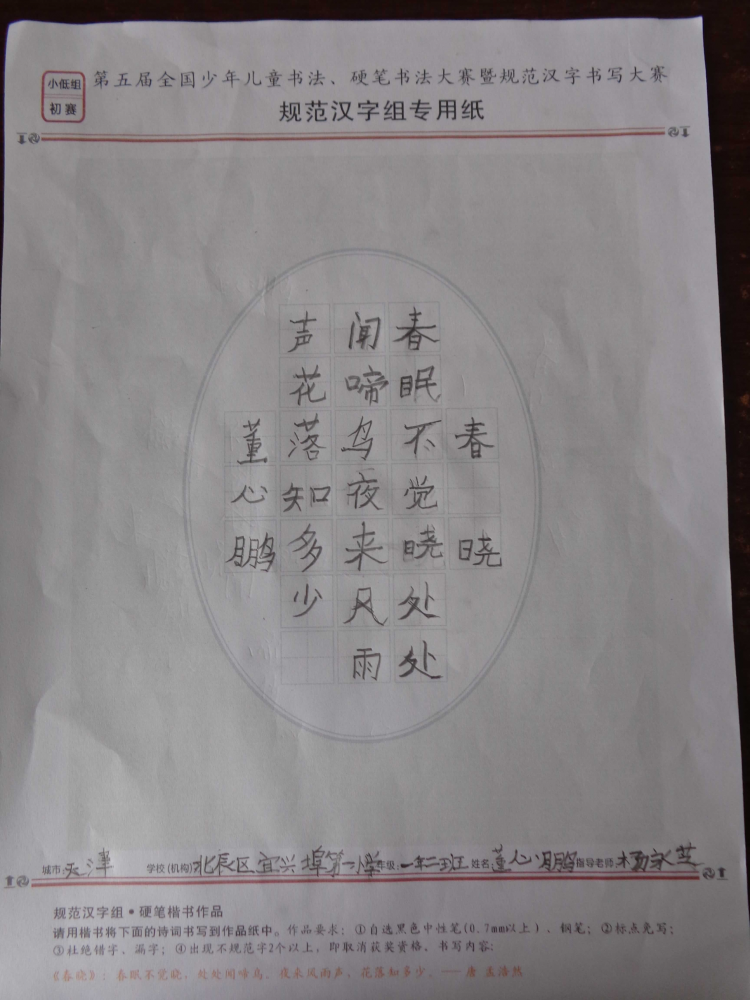 小低组
初赛
第五届全国少年儿童书法、硬笔书法大赛暨规范汉字书写大赛
规范汉字组专用纸
春晓
春眠不觉晓处处
闻啼鸟夜来风雨
声花落知多少
董心鹏
城市:天津 学校(机构)北辰区宜兴埠第一小学 年级:一年二班 姓名:董心鹏 指导老师:杨永芝
规范汉字组·硬笔楷书作品
请用楷书将下面的诗词书写到作品纸中。作品要求:①自选黑色中性笔(0.7mm以上)、钢笔;②标点免写;
③杜绝错字、漏字;④出现不规范字2个以上,即取消获奖资格。书写内容:
《春晓》:春眠不觉晓,处处闻啼鸟。夜来风雨声,花落知多少。——唐 孟浩然